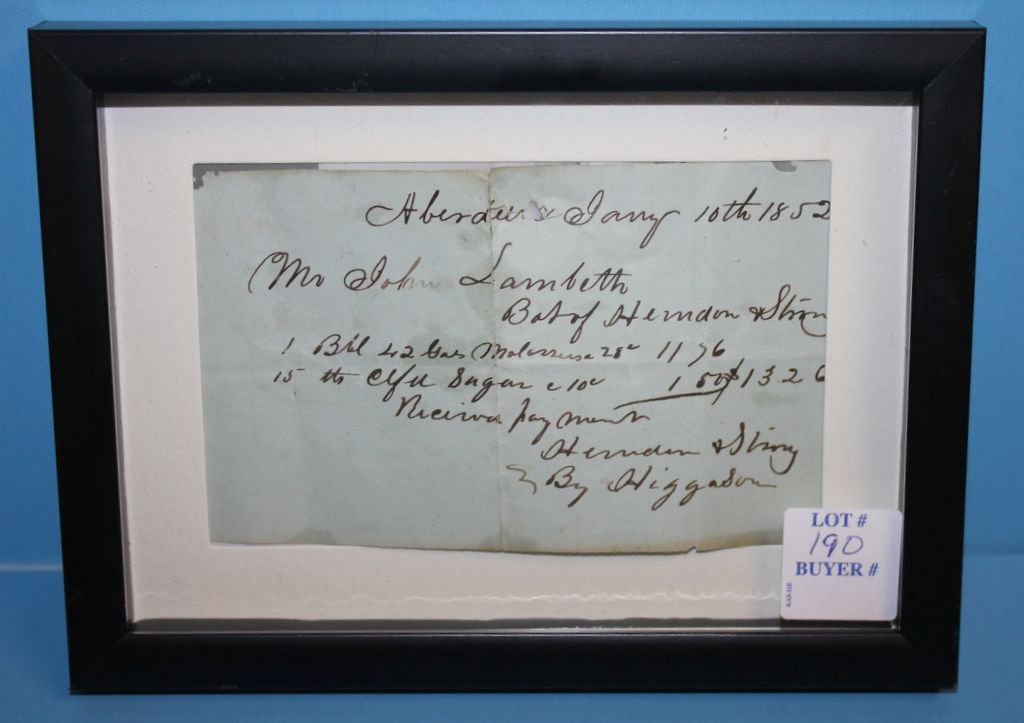 Aberdeen Jany 10th 1852
Mr John Lambeth
Bot of Herndon & Strong
1 Bbl 42 Gals Molasses 28c 11 76
15 lbs Clfd Sugar c 10c 1 50 $13 26
Received payment
Herndon & Strong
By Higgason
LOT #
190
BUYER #